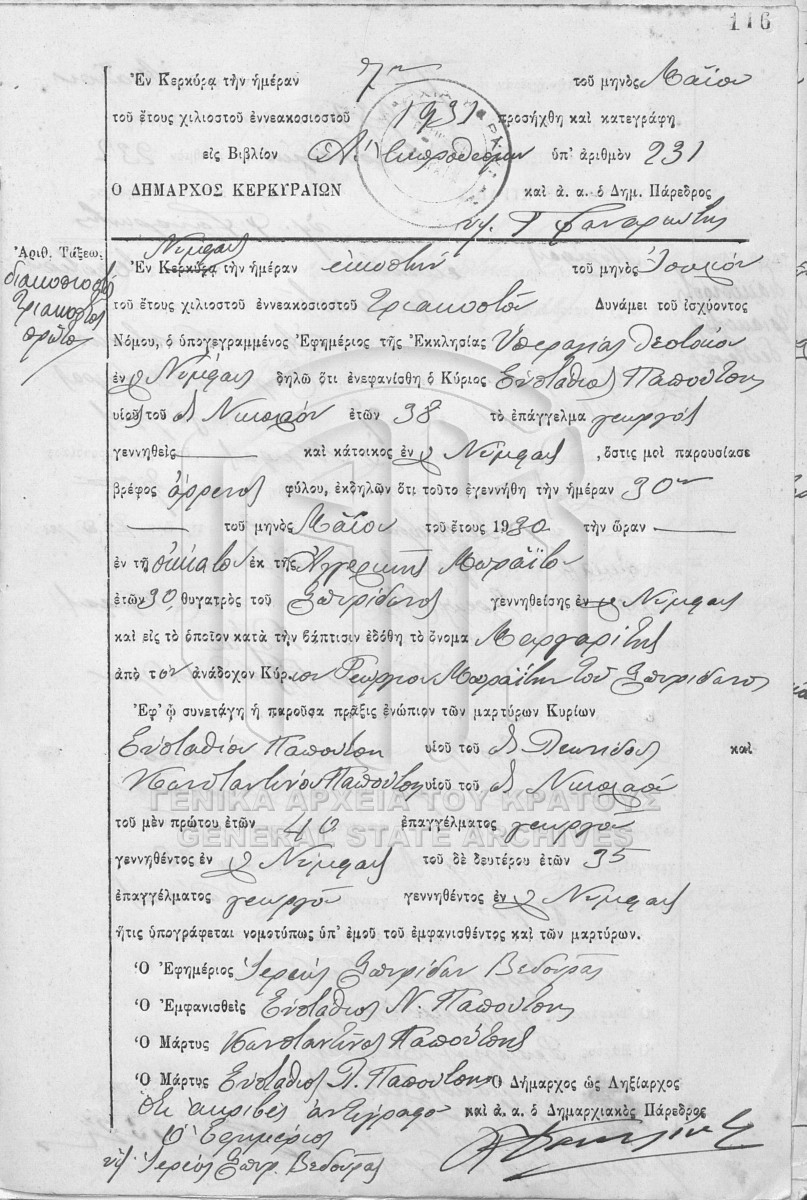 116
Ἐν Κερκύρᾳ τὴν ἡμέραν 7ην τοῦ μηνὸς Μαΐου
τοῦ ἔτους χιλιοστοῦ ἐννεακοσιοστοῦ 1931 προσήχθη καὶ κατεγράφη
εἰς Βιβλίον Α. Ἐκπρόθεσμον ὑπ' ἀριθμὸν 231
Ο ΔΗΜΑΡΧΟΣ ΚΕΡΚΥΡΑΙΩΝ καὶ ἀ. α. ὁ Δημ. Πάρεδρος
Ἀριθ. Τάξεως
διακοσιοστὸς
τριακοστὸς
πρῶτος
Νύμφαις
Ἐν Κερκύρᾳ τὴν ἡμέραν εἰκοστὴν τοῦ μηνὸς Ἰουλίου
τοῦ ἔτους χιλιοστοῦ ἐννεακοσιοστοῦ τριακοστοῦ Δυνάμει τοῦ ἰσχύοντος
Νόμου, ὁ ὑπογεγραμμένος Ἐφημέριος τῆς Ἐκκλησίας Ὑπεραγίας Θεοτόκου
ἐν Νύμφαις δηλῶ ὅτι ἐνεφανίσθη ὁ Κύριος Εὐστάθιος Παπούτσης
υἱὸς τοῦ Νικολάου ἐτῶν 38 τὸ ἐπάγγελμα γεωργὸς
γεννηθεὶς καὶ κάτοικος ἐν Νύμφαις, ὅστις μοὶ παρουσίασε
βρέφος ἄρρενος φύλου, ἐκδηλῶν ὅτι τοῦτο ἐγεννήθη τὴν ἡμέραν 30ην
τοῦ μηνὸς Μαΐου τοῦ ἔτους 1930 τὴν ὥραν
ἐν τῇ οἰκίᾳ του ἐκ τῆς Ἀγγερικῆς Μωραΐτου
ἐτῶν 30, θυγατρὸς τοῦ Σπυρίδωνος γεννηθείσης ἐν Νύμφαις
καὶ εἰς τὸ ὁποῖον κατὰ τὴν βάπτισιν ἐδόθη τὸ ὄνομα Μαργαρίτης
ἀπὸ τὸν ἀνάδοχον Κύριον Γεώργιον Μωραΐτην τοῦ Σπυρίδωνος
Ἐφ' ᾧ συνετάγη ἡ παροῦσα πρᾶξις ἐνώπιον τῶν μαρτύρων Κυρίων
Εὐσταθίου Παπούτση υἱοῦ τοῦ Λεωνίδου καὶ
Κωνσταντίνου Παπούτση υἱοῦ τοῦ Νικολάου
ΓΕΝΙΚΑ ΑΡΧΕΙΑ ΤΟΥ ΚΡΑΤΟΥΣ
τοῦ μὲν πρώτου ἐτῶν 40 ἐπαγγέλματος γεωργοῦ
GENERAL STATE ARCHIVES
γεννηθέντος ἐν Νύμφαις τοῦ δὲ δευτέρου ἐτῶν 35
ἐπαγγέλματος γεωργοῦ γεννηθέντος ἐν Νύμφαις
ἥτις ὑπογράφεται νομοτύπως ὑπ' ἐμοῦ τοῦ ἐμφανισθέντος καὶ τῶν μαρτύρων.
Ὁ Ἐφημέριος Ἱερεὺς Σπυρίδων Βεδούρας
Ὁ Ἐμφανισθεὶς Εὐστάθιος Ν. Παπούτσης
Ὁ Μάρτυς Κωνσταντῖνος Παπούτσης
Ὁ Μάρτυς Εὐστάθιος Λ. Παπούτσης Ὁ Δήμαρχος ὡς Ληξίαρχος
Ὅτι ἀκριβὲς ἀντίγραφο καὶ ἀ. α. ὁ Δημαρχιακὸς Πάρεδρος
Ὁ Ἐφημέριος
Ἱερεὺς Σπυρ. Βεδούρας